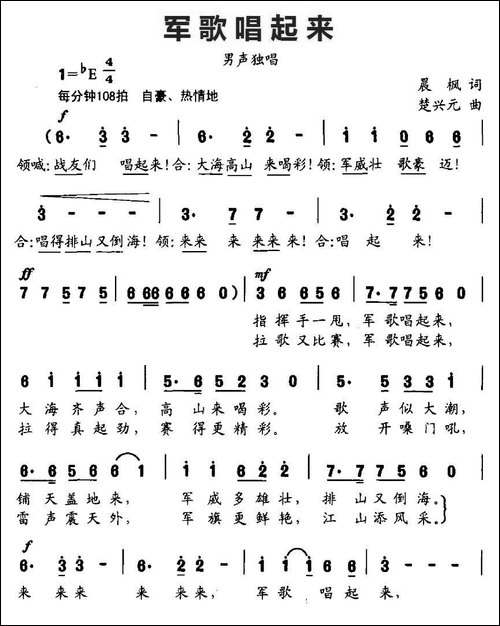 军歌唱起来
男声独唱
1=♭E 4/4
晨枫 词
每分钟108拍 自豪、热情地
楚兴元 曲
f
(6· 3 3 - | 6· 2 2 - | 1 1 0 6 6 |
领喊:战友们 唱起来!合:大海高山 来喝彩!领:军威壮 歌豪迈!
3 - - - | 3· 7 7 - | 3· 2 2 - |
合:唱得排山又倒海!领:来来 来 来来来!合:唱 起 来!
ff mf
7 7 5 7 5 | 6 66 6 6 6 0) | 3 6 6 5 6 | 7· 7 7 5 6 0 |
指挥手一甩,军歌唱起来,
拉歌又比赛,军歌唱起来,
6 1 1 1 1 | 5· 6 5 2 3 0 | 5· 5 3 3 1 |
大海齐声合,高山来喝彩。歌声似大潮,
拉得真起劲,赛得更精彩。放开嗓门吼,
6· 5 5 6 6 1 | 1 1 6 2 2 | 7· 7 7 5 6 0 |
铺天盖地来,军威多雄壮,排山又倒海。
雷声震天外,军旗更鲜艳,江山添风采。
f
6· 3 3 - | 6· 2 2 - | 1 1 1 6 6 | 3 - - - |
来来来 来来来,军歌唱起来,